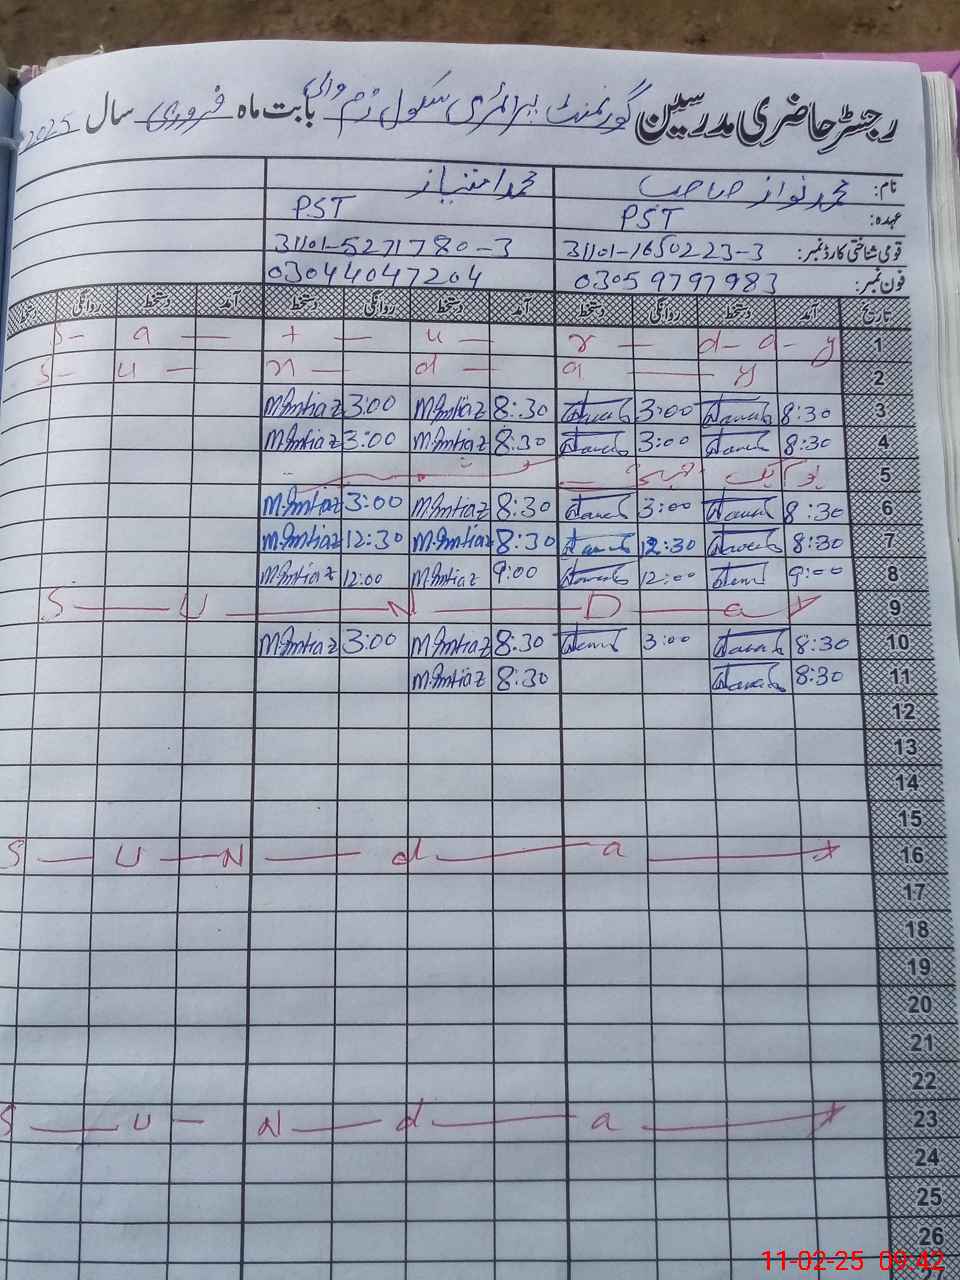 رجسٹر حاضری مدرسین گورنمنٹ پرائمری سکول والی بابت ماہ فروری سال 2025
نام: محمد نواز صاحب محمد امتیاز
عہدہ: PST PST
قومی شناختی کارڈ نمبر: 31101-1650223-3 31101-5271780-3
فون نمبر: 03059797983 03044047204
تاریخ آمد دستخط روانگی دستخط آمد دستخط روانگی دستخط آمد دستخط روانگی دستخط
1 S- a — t — u — r — d- a- y
2 S- u — n — d — a — y
3 8:30 3:00 8:30 M.Imtiaz 3:00 M.Imtiaz
4 8:30 3:00 8:30 M.Imtiaz 3:00 M.Imtiaz
5
6 8:30 3:00 8:30 M.Imtiaz 3:00 M.Imtiaz
7 8:30 12:30 8:30 M.Imtiaz 12:30 M.Imtiaz
8 9:00 12:00 9:00 M.Imtiaz 12:00 M.Imtiaz
9 S — U — N — D — a — y
10 8:30 3:00 8:30 M.Imtiaz 3:00 M.Imtiaz
11 8:30 8:30 M.Imtiaz
12
13
14
15
16 S — U — N — d — a — y
17
18
19
20
21
22
23 S — U — N — d — a — y
24
25
26
27
11-02-25 09:42